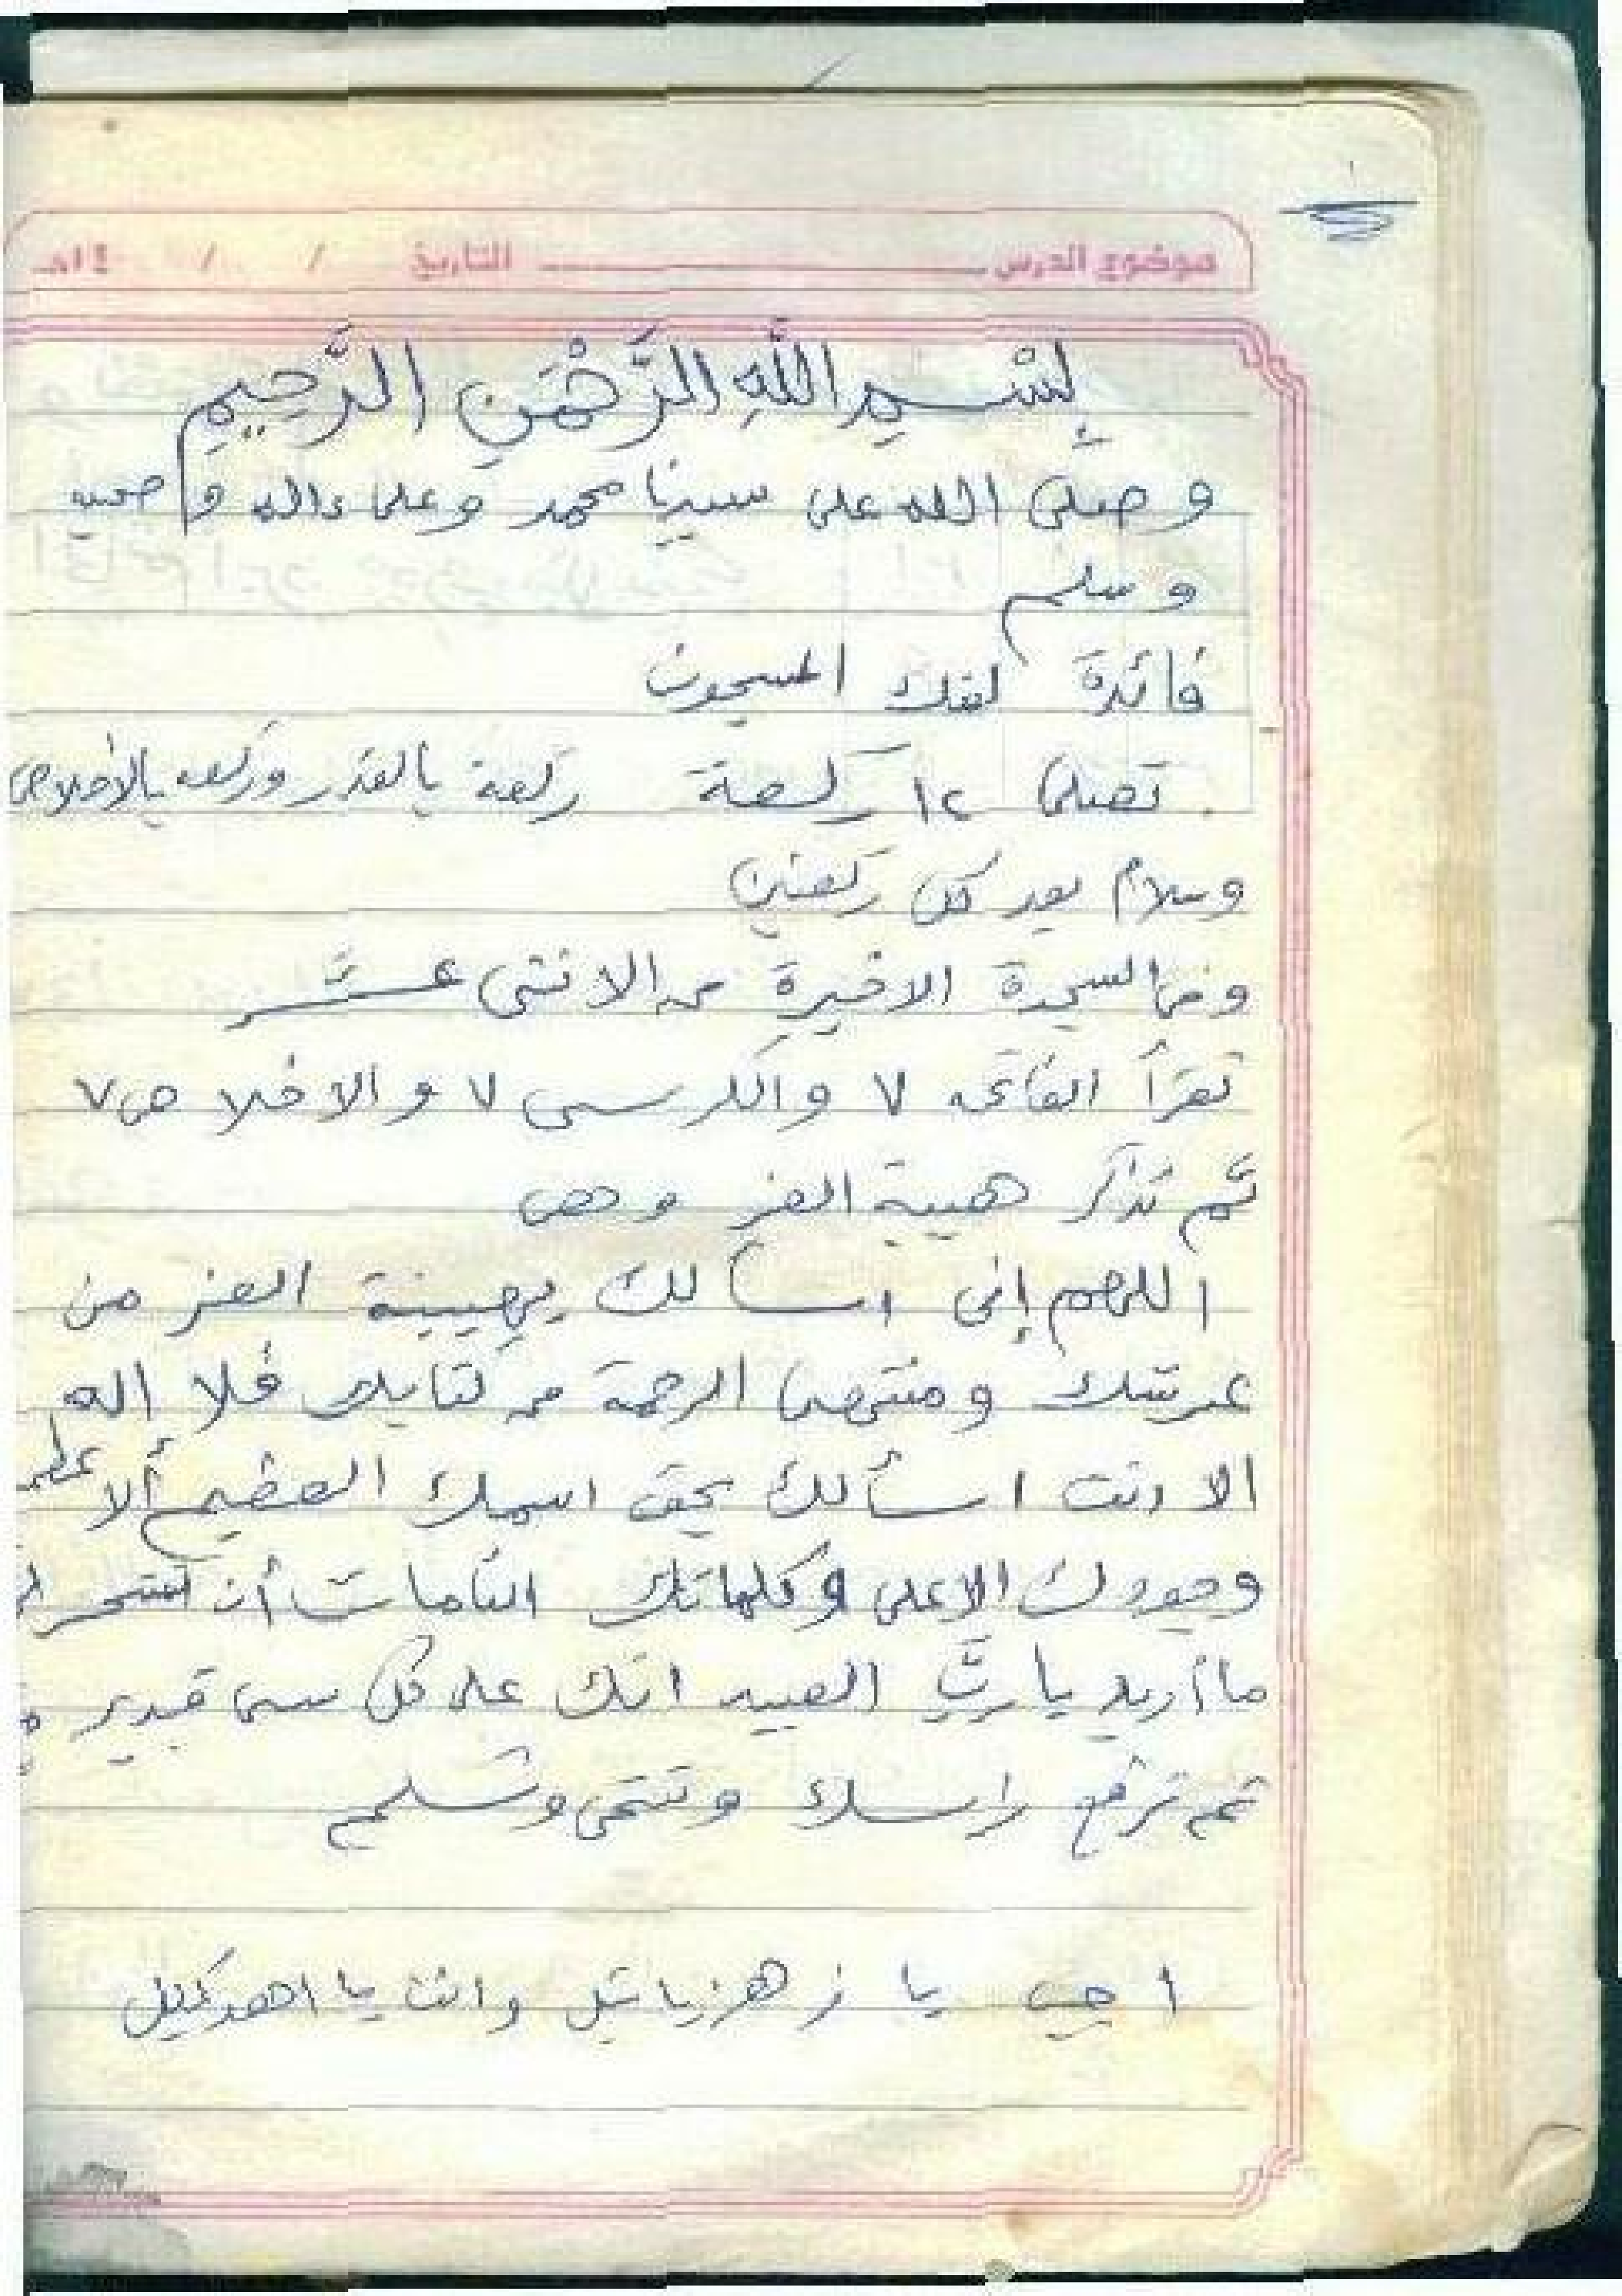 موضوع الدرس ـــــــــ التاريخ / / ١٤هـ
بِسْمِ اللَّهِ الرَّحْمَنِ الرَّحِيمِ
وصلى الله على سيدنا محمد وعلى ءاله وصحبه
وسلم
فائدة لفك المسجون
تصلى ١٢ ركعة ركعة بالقدر وركعه بالاخلاص
وسلام بعد كل ركعتين
وفى السجدة الاخيرة من الاثنى عشر
تقرأ الفاتحه ٧ والكرسى ٧ والاخلاص ٧
ثم تذكر هيبة العز وهى
اللهم إنى اسألك بهيبة العز من
عرشك ومنتهى الرحمة من كتابك فلا إله
الا انت اسألك بحق اسمك العظيم ألاعظم
وجودك الاعلى وكلماتك التامات أن تسخر لى
ما أريد يا ربَّ العبيد انك على كل شى قدير
ثم ترفع راسك وتتحى وتسلم
اجب يا زهزيائيل وانت يا اهدكيل